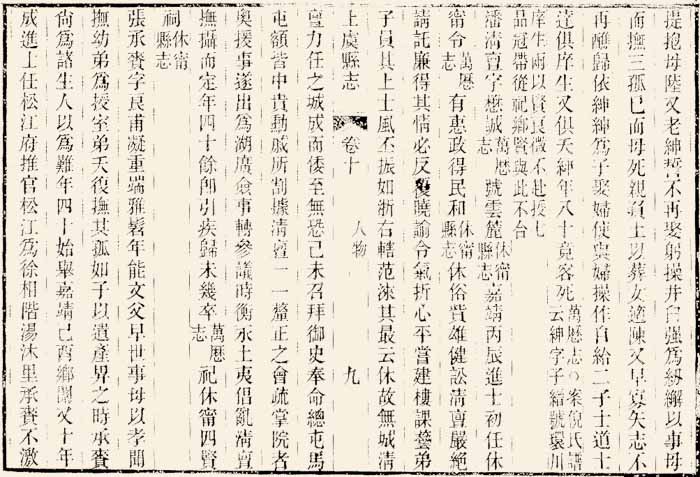 提抱母陸又老紳誓不再娶躬操井臼強爲紡繲以事母
而撫三孤已而母死親負土以葬女適陳又早寡矢志不
再醮歸依紳紳爲子娶婦使與婦操作自給二子士道士
達俱庠生又俱夭紳年八十竟客死萬曆志〇案倪氏譜云紳字子縉號環川
庠生兩以賢良徵不赴授七品冠帶從祀鄉賢與此不合
潘清亶字懋誠萬曆志號雲麓休寧縣志嘉靖丙辰進士初任休
甯令萬曆志有惠政得民和休甯縣志休俗貲雄健訟清亶嚴絶
請託廉得其情必反覆曉諭令氣折心平嘗建樓課藝弟
子員其上士風丕振如浙右轄范淶其最云休故無城清
上虞縣志 卷十 人物 九
亶力任之城成而倭至無恐己未召拜御史奉命總屯馬
屯額皆中貴勳戚所割據清亶一一釐正之會疏掌院者
奧援事遂出爲湖廣僉事轉參議時衡永土夷倡亂清亶
撫攝而定年四十餘卽引疾歸未幾卒萬曆志祀休甯四賢
祠休甯縣志
張承賚字艮甫凝重端雅髫年能文父早世事母以孝聞
撫幼弟爲授室弟夭復撫其孤如子以遺產畀之時承賚
尚爲諸生人以爲難年四十始舉嘉靖己酉鄉闈又十年
成進士任松江府推官松江爲徐相階湯沐里承賚不激